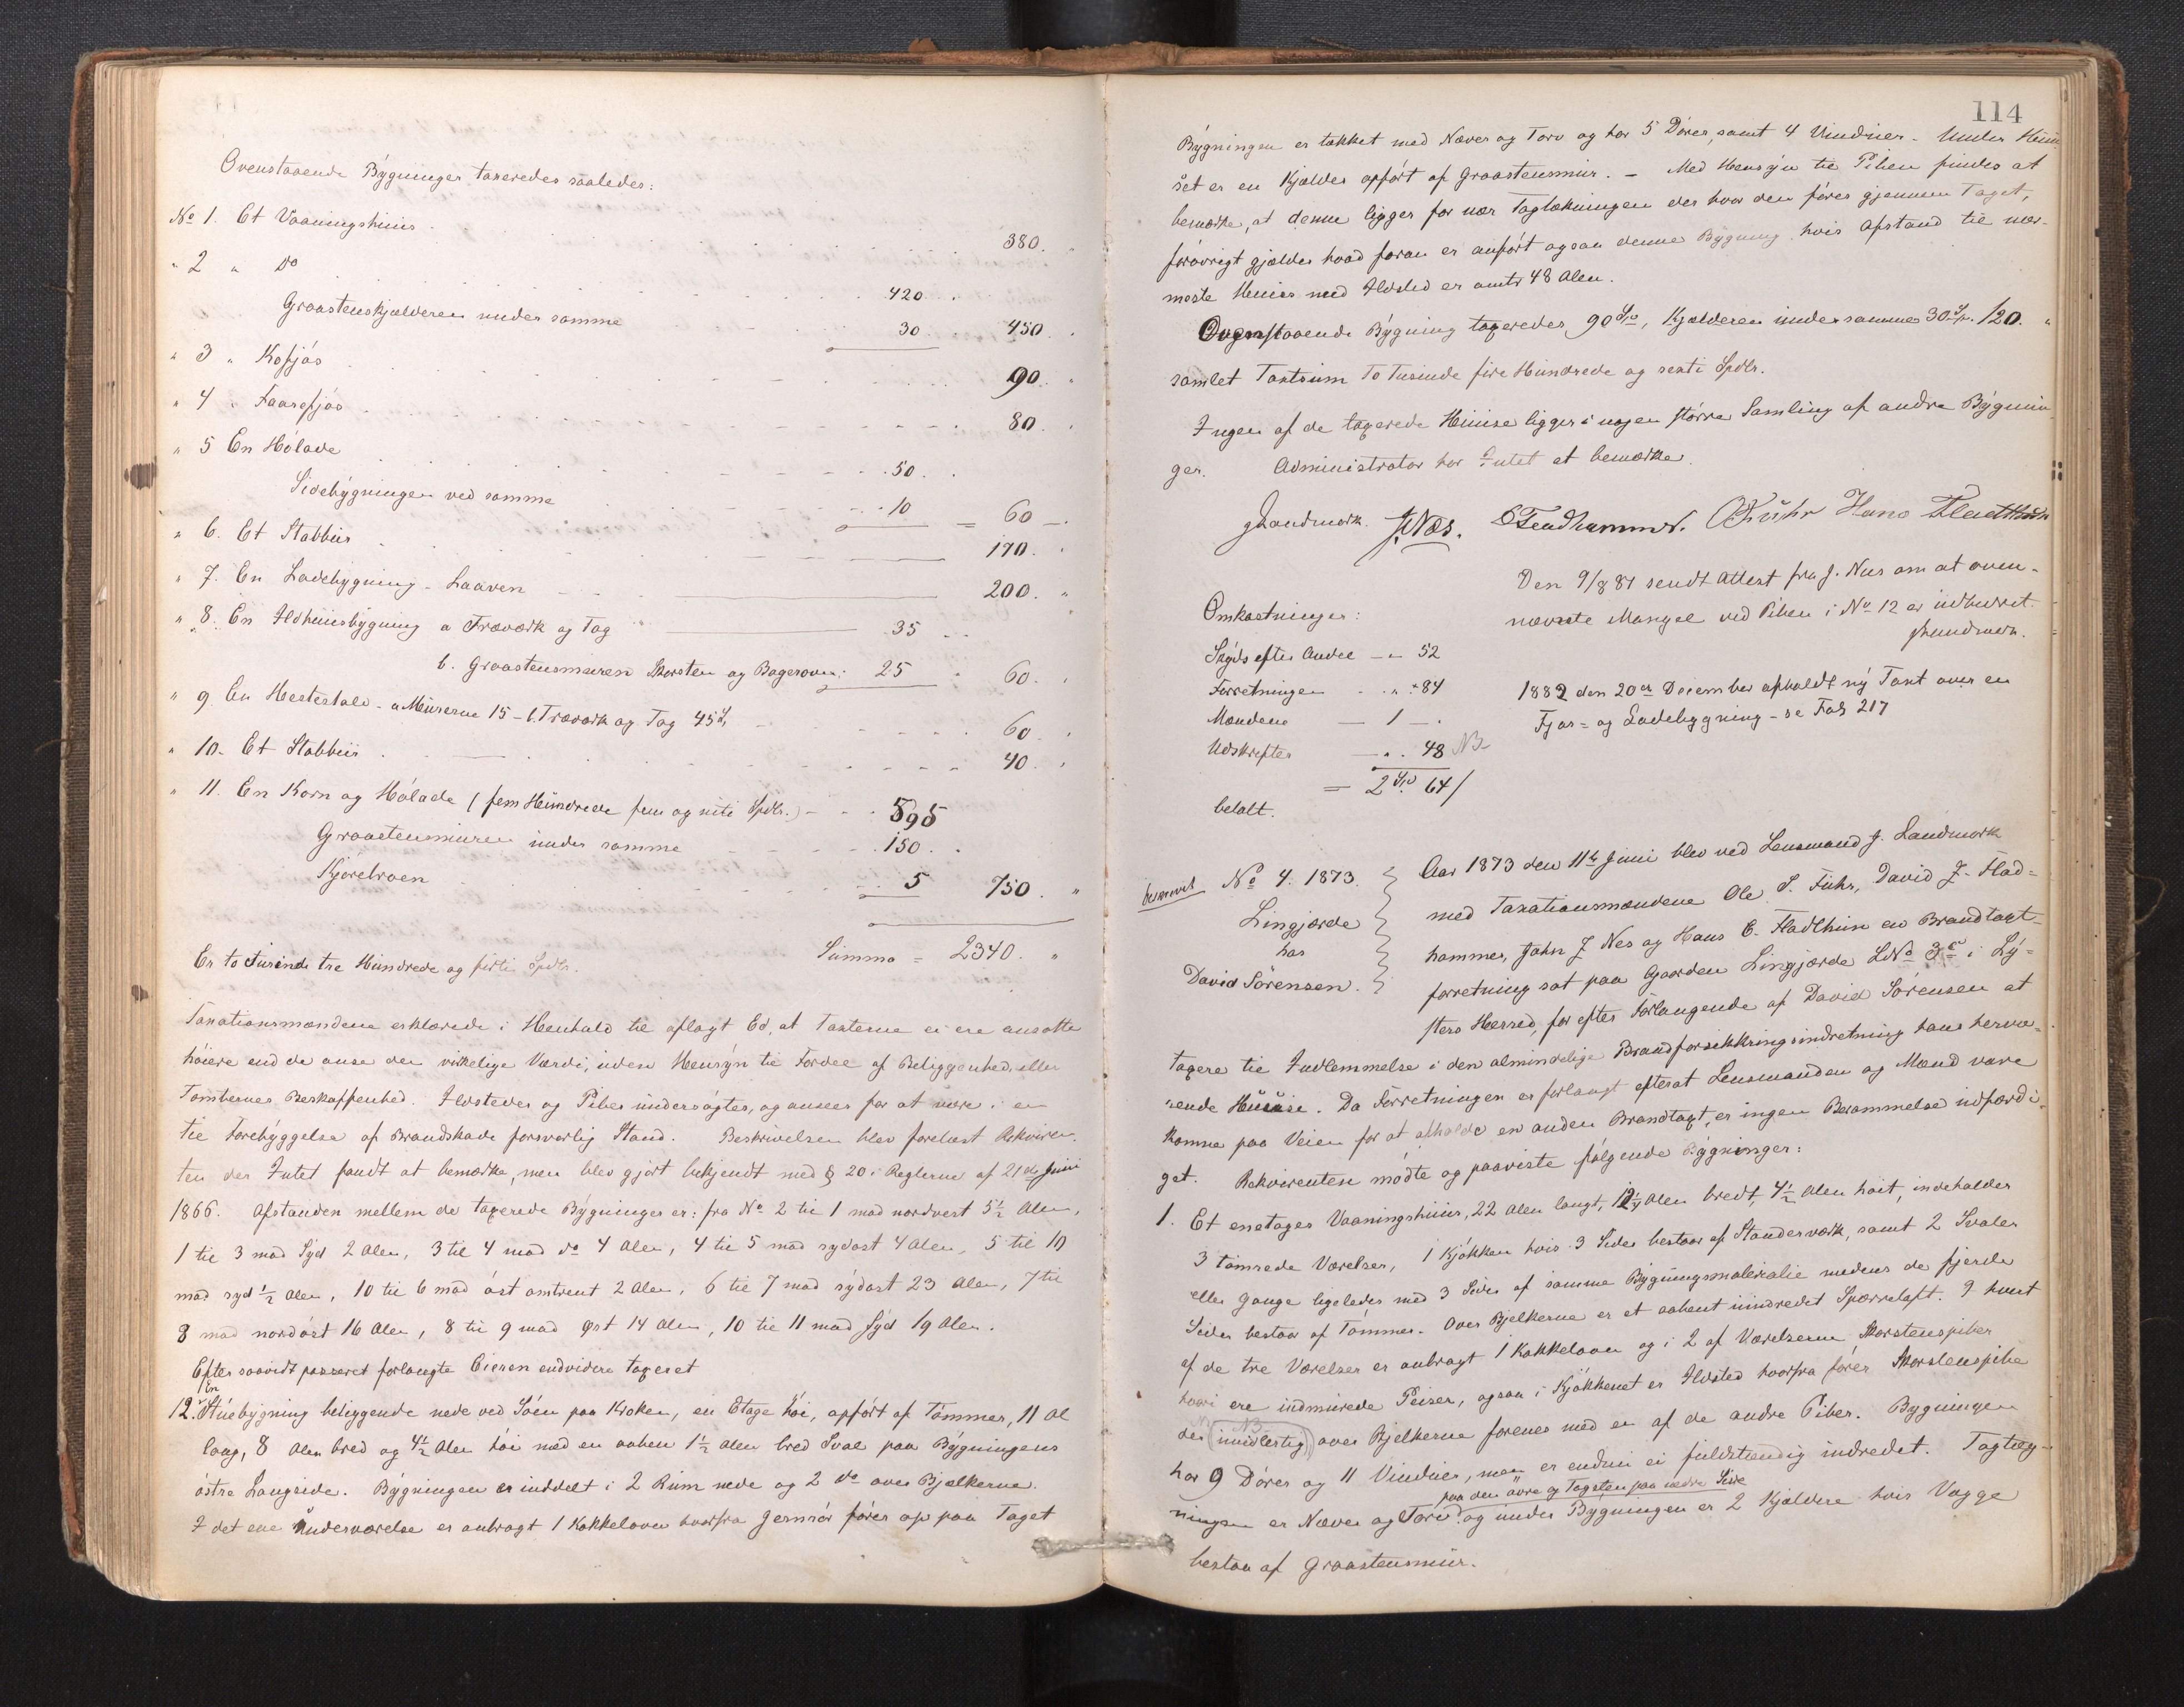 Ovenstaaende Bÿgninger taxeredes saaledes:
No 1. Et Vaaningshuus 380. "
" 2 " do 420 .
Graastenskjælderen under samme 30 . 450. "
" 3 " Kofjós 90. "
" 4 " Faarefjós 80. "
" 5 En Hólade 50. .
Sidebÿgningen ved samme 10 = 60 — .
" 6. Et Stabbur 170. "
" 7. En Ladebygning - Laaven 200. "
" 8. En Ildhuusbÿgning a Træværk og Tag 35
b. Graastensmuren Skorsten og Bagerovn: 25 60. "
" 9 En Hestestald - a Murerne 15 - b. Træværk og Tag 45 60. "
" 10. Et Stabbur 40. "
" 11. En Korn og Hólade (fem Hundrede fem og niti Spdlr.) 595
Graastensmuren under samme 150. .
Kjórebroen 5 750. "
Summa = 2340. "
Er to Tusinde tre Hundrede og firti Spdlr.
Taxationsmændene erklærede i Henhold til aflagt Ed, at Taxterne ei ere ansatte
hóiere end de anse den virkelige Værdi, uden Hensÿn til Fordel af Beliggenhed, eller
Tomternes Beskaffenhed. Ildsteder og Piber undersógtes, og ansees for at være i en
til Forebÿggelse af Brandskade forsvarlig Stand. Beskrivelsen blev forelæst Rekviren-
ten der Intet fandt at bemærke, men blev gjórt bekjendt med § 20 i Reglerne af 21de Juni
1866. Afstanden mellem de taxerede Bÿgninger er: fra No 2 til 1 mod nordvest 5½ Alen,
1 til 3 mod Sÿd 2 Alen, 3 til 4 mod do 4 Alen, 4 til 5 mod sydost 4 Alen, 5 til 10
mod syd ½ Alen, 10 til 6 mod óst omtrent 2 Alen, 6 til 7 mod sÿdost 23 Alen, 7 til
8 mod nordóst 16 Alen, 8 til 9 mod Øst 14 Alen, 10 til 11 mod Sÿd 19 Alen.
Efter saavidt passeret forlangte Eieren endvidere taxeret
En
12. Stuebÿgning beliggende nede ved Sóen paa Kroken, en Etage hói, opfórt af Tómmer, 11 Al
lang, 8 Alen bred og 4½ Alen hói med en aaben 1½ Alen bred Sval paa Bÿgningens
óstre Langside. Bÿgningen er inddelt i 2 Rum nede og 2 do over Bjælkerne.
I det ene Underværelse er anbragt 1 Kakkelovn hvorfra Jernrór fóres op paa Taget
114
Bÿgningen er tækket med Næver og Torv og har 5 Dóre, samt 4 Vinduer. - Under Huu-
set er en Kjælder opfórt af Graastensmur. - Med Hensÿn til Piben findes at
bemærke, at denne ligger for nær Taglækningen der hvor den fóres gjennem Taget,
fóróvrigt gjælder hvad foran er anfórt ogsaa denne Bÿgning, hvis Afstand til nær-
meste Huus med Ildsted er omtr 48 Alen.
Ovenstaaende Bÿgning taxeredes 90 Sp, Kjælderen under samme 30 Sp. 120. "
samlet Taxtsum To Tusinde fire Hundrede og sexti Spdlr.
Ingen af de taxerede Huuse ligger i nogen stórre Samling af andre Bÿgnin-
ger. Administrator har Intet at bemærke.
J Landmark. J. Næs. D Fladhammer. O Fuhr Hans Fladthun
Den 9/8 81 sendt Attest fra J. Nes om at oven-
nævnte Mangel ved Piben i No 12 er udbedret.
JLandmark.
Omkostninger:
Skÿds efter Andel - " 52
Forretningen - " " 84
Mændene - 1 - .
Udskrifter - " . 48 NB
= 2 Sp. 64 /
betalt.
1882 den 20de December afholdt nÿ Taxt over en
Fjøs- og Ladebygning - se Fol. 217
No 4. 1873.
Lingjærde
hos
David Sórensen.
Aar 1873 den 11te Juni blev ved Lensmand J. Landmark
med Taxationsmændene Ole S. Fuhr, David J. Flad-
hammer, John J Nes og Hans E. Fladthun en Brandtaxt-
forretning sat paa Gaarden Lingjærde LNo 3 i Lÿ-
sters Herred, for efter Forlangende af David Sórensen at
taxere til Indlemmelse i den almindelige Brandforsikkringsindretning hans herva-
rende Huuse. Da Forretningen er forlangt efterat Lensmanden og Mænd vare
komne paa Veien for at afholde en anden Brandtaxt, er ingen Berammelse udfærdi-
get. Rekvirenten módte og paaviste fólgende Bÿgninger:
1. Et enetages Vaaningshuus, 22 Alen langt, 12½ Alen bredt, 4½ Alen hóit, indeholder
3 tómrede Værelser, 1 Kjókken hvis 3 Sider bestaar af Standerværk, samt 2 Svaler
eller Gange ligeledes med 3 Sider af samme Bÿgningsmateriale medens de fjerde
Sider bestaar af Tómmer. Over Bjelkerne er et aabent uindredet Spærreloft. I hvert
af de tre Værelser er anbragt 1 Kakkelovn og i 2 af Værelserne Skorstenspiber
hvori ere indmurede Peiser, ogsaa i Kjókkenet er Ildsted hvorfra fórer Skorstenspibe
NB
der (imidlertid) over Bjelkerne forenes med en af de andre Piber. Bygningen
har 9 Dóre og 11 Vinduer, men er endnu ei fuldstændig indredet. Tagtæk-
paa den óvre og Tagsten paa nedre Side
ningen er Næver og Torv og under Bÿgningen er 2 Kjældere hvis Vægge
bestaa af Graastensmur.